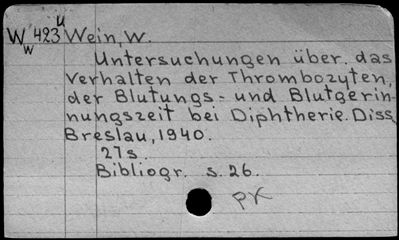 W 423 u Wein, W.
w
Untersuchungen über. das
Verhalten der Thrombozyten,
der Blutungs- und Blutgerin-
nungszeit bei Diphtherie. Diss
Breslau, 1940.
27s.
Bibliogr. s. 26.
PK